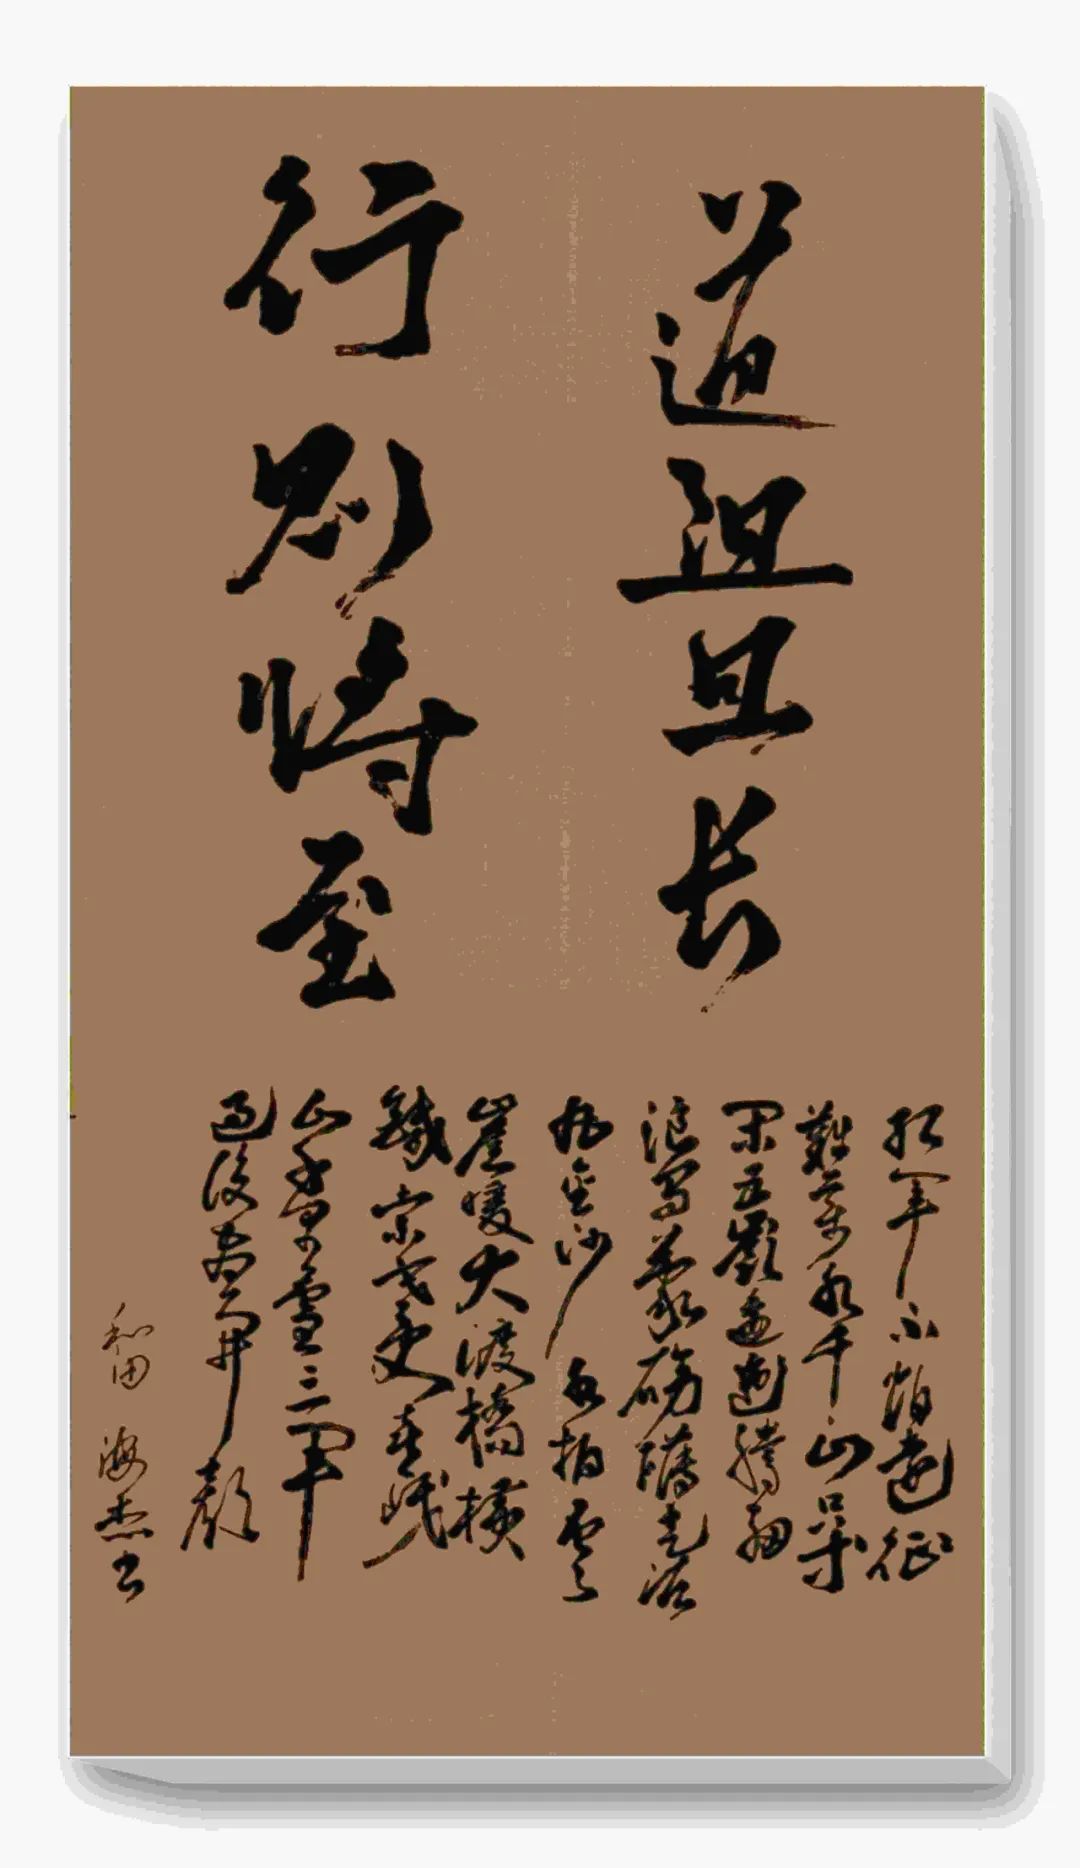 道阻且长
行则将至
红军不怕远征
難万水千山只等
闲五嶺逶迤腾细
浪乌蒙磅礴走泥
丸金沙水拍云
崖暖大渡橋横
鐵索寒更喜岷
山千里雪三军
过後尽开颜
和田 海杰书